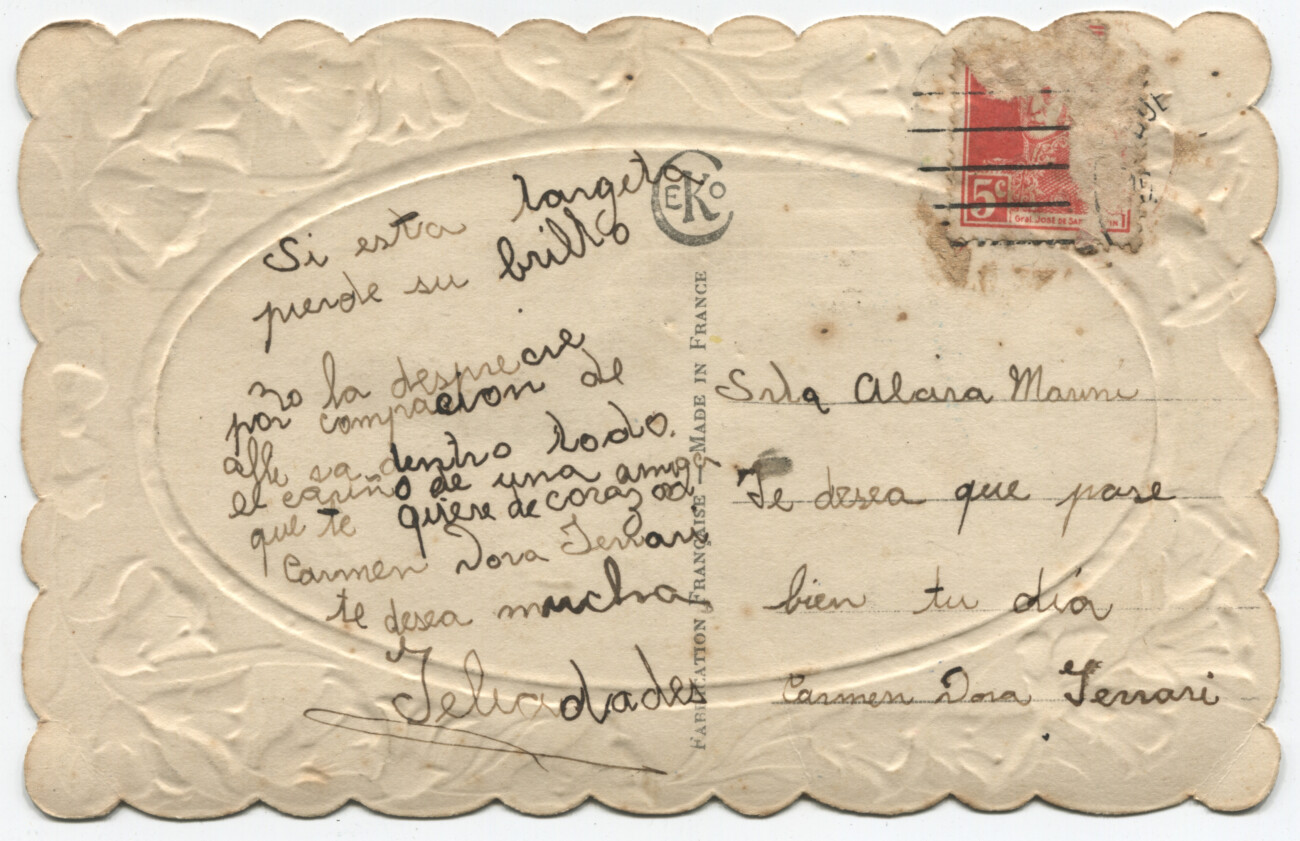 Si esta targeta
pierde su brillo
no la desprecie
por compacion de
alle va dentro todo.
el cariño de una amiga
que te quiere de corazon
Carmen Dora Ferrari
te desea mucha
Felicidades
EKCO
FABRICATION FRANÇAISE — MADE IN FRANCE
5c
Gral. JOSÉ DE SAN MARTIN
Srta Alaira Marini
Te desea que pase
bien tu día
Carmen Dora Ferrari